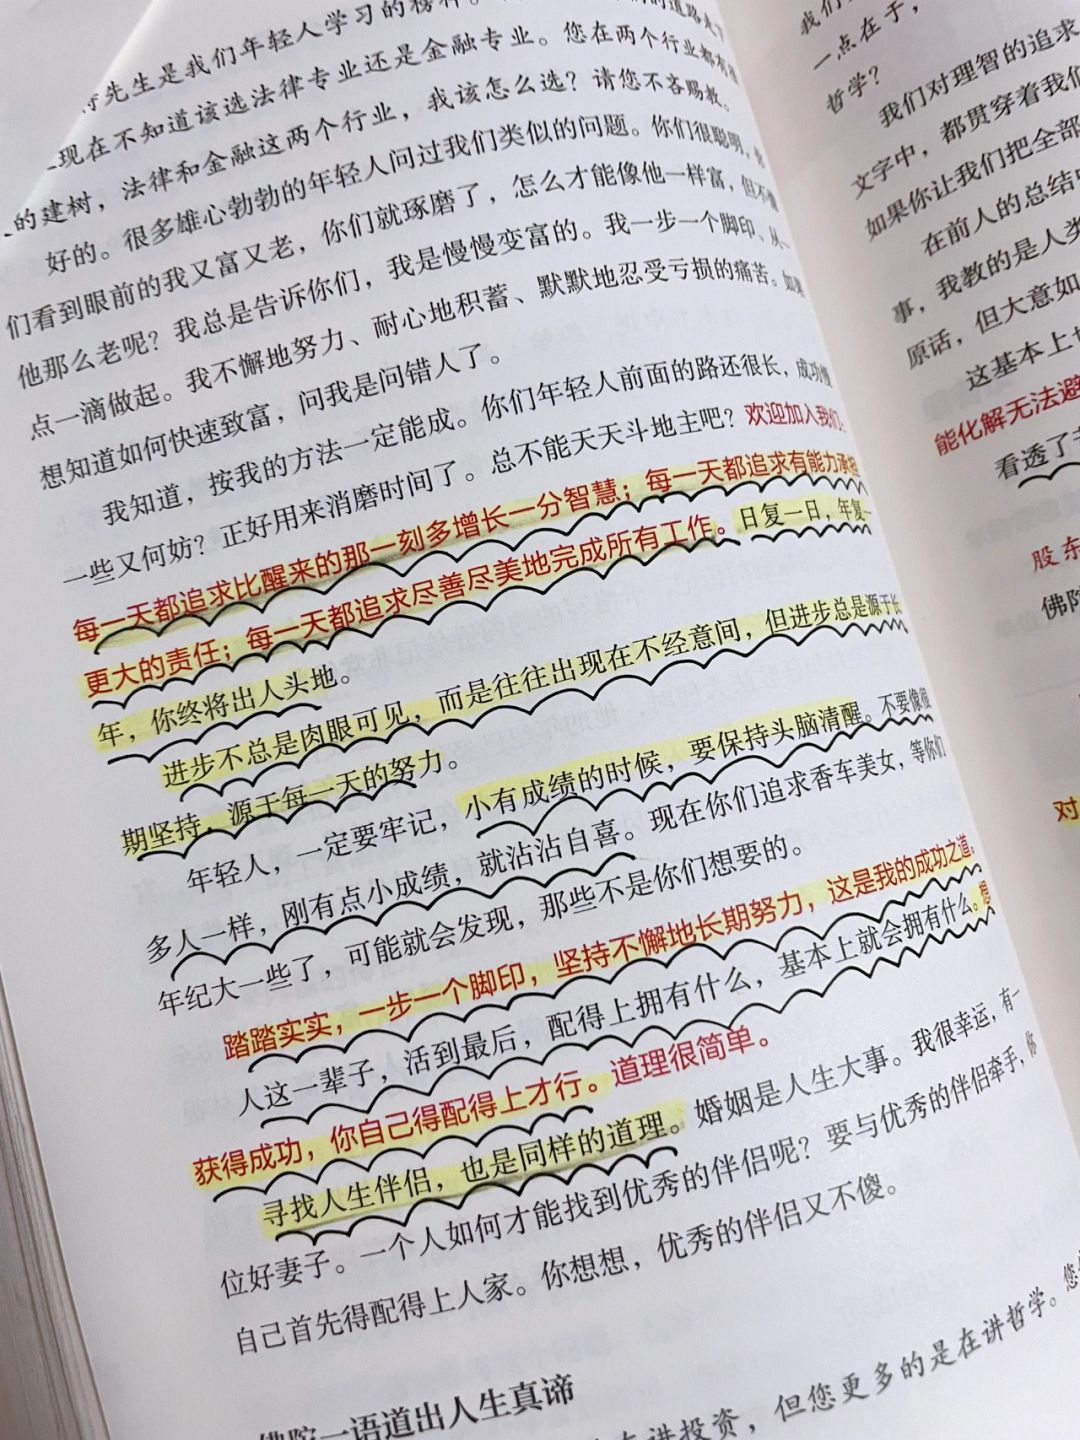 先生是我们年轻人学习的榜样。
现在不知道该选法律专业还是金融专业。您在两个行业都有
的建树，法律和金融这两个行业，我该怎么选？请您不吝赐教。
好的。很多雄心勃勃的年轻人问过我们类似的问题。你们很聪明，
们看到眼前的我又富又老，你们就琢磨了，怎么才能像他一样富，但不像
他那么老呢？我总是告诉你们，我是慢慢变富的。我一步一个脚印、从一
点一滴做起。我不懈地努力、耐心地积蓄、默默地忍受亏损的痛苦。如果
想知道如何快速致富，问我是问错人了。
我知道，按我的方法一定能成。你们年轻人前面的路还很长，成功慢
一些又何妨？正好用来消磨时间了。总不能天天斗地主吧？欢迎加入我们，
每一天都追求比醒来的那一刻多增长一分智慧；每一天都追求有能力承担
更大的责任；每一天都追求尽善尽美地完成所有工作。日复一日，年复一
年，你终将出人头地。
进步不总是肉眼可见，而是往往出现在不经意间，但进步总是源于长
期坚持，源于每一天的努力。
年轻人，一定要牢记，小有成绩的时候，要保持头脑清醒。不要像很
多人一样，刚有点小成绩，就沾沾自喜。现在你们追求香车美女，等你们
年纪大一些了，可能就会发现，那些不是你们想要的。
踏踏实实，一步一个脚印，坚持不懈地长期努力，这是我的成功之道。
人这一辈子，活到最后，配得上拥有什么，基本上就会拥有什么。想
获得成功，你自己得配得上才行。道理很简单。
寻找人生伴侣，也是同样的道理。婚姻是人生大事。我很幸运，有一
位好妻子。一个人如何才能找到优秀的伴侣呢？要与优秀的伴侣牵手，你
自己首先得配得上人家。你想想，优秀的伴侣又不傻。
佛陀一语道出人生真谛
在讲投资，但您更多的是在讲哲学。您
我们
一点在于，
哲学？
我们对理智的追求
文字中，都贯穿着我们
如果你让我们把全部
在前人的总结中
事，我教的是人类
原话，但大意如
这基本上
能化解无法避
看透了
股东
佛陀
对